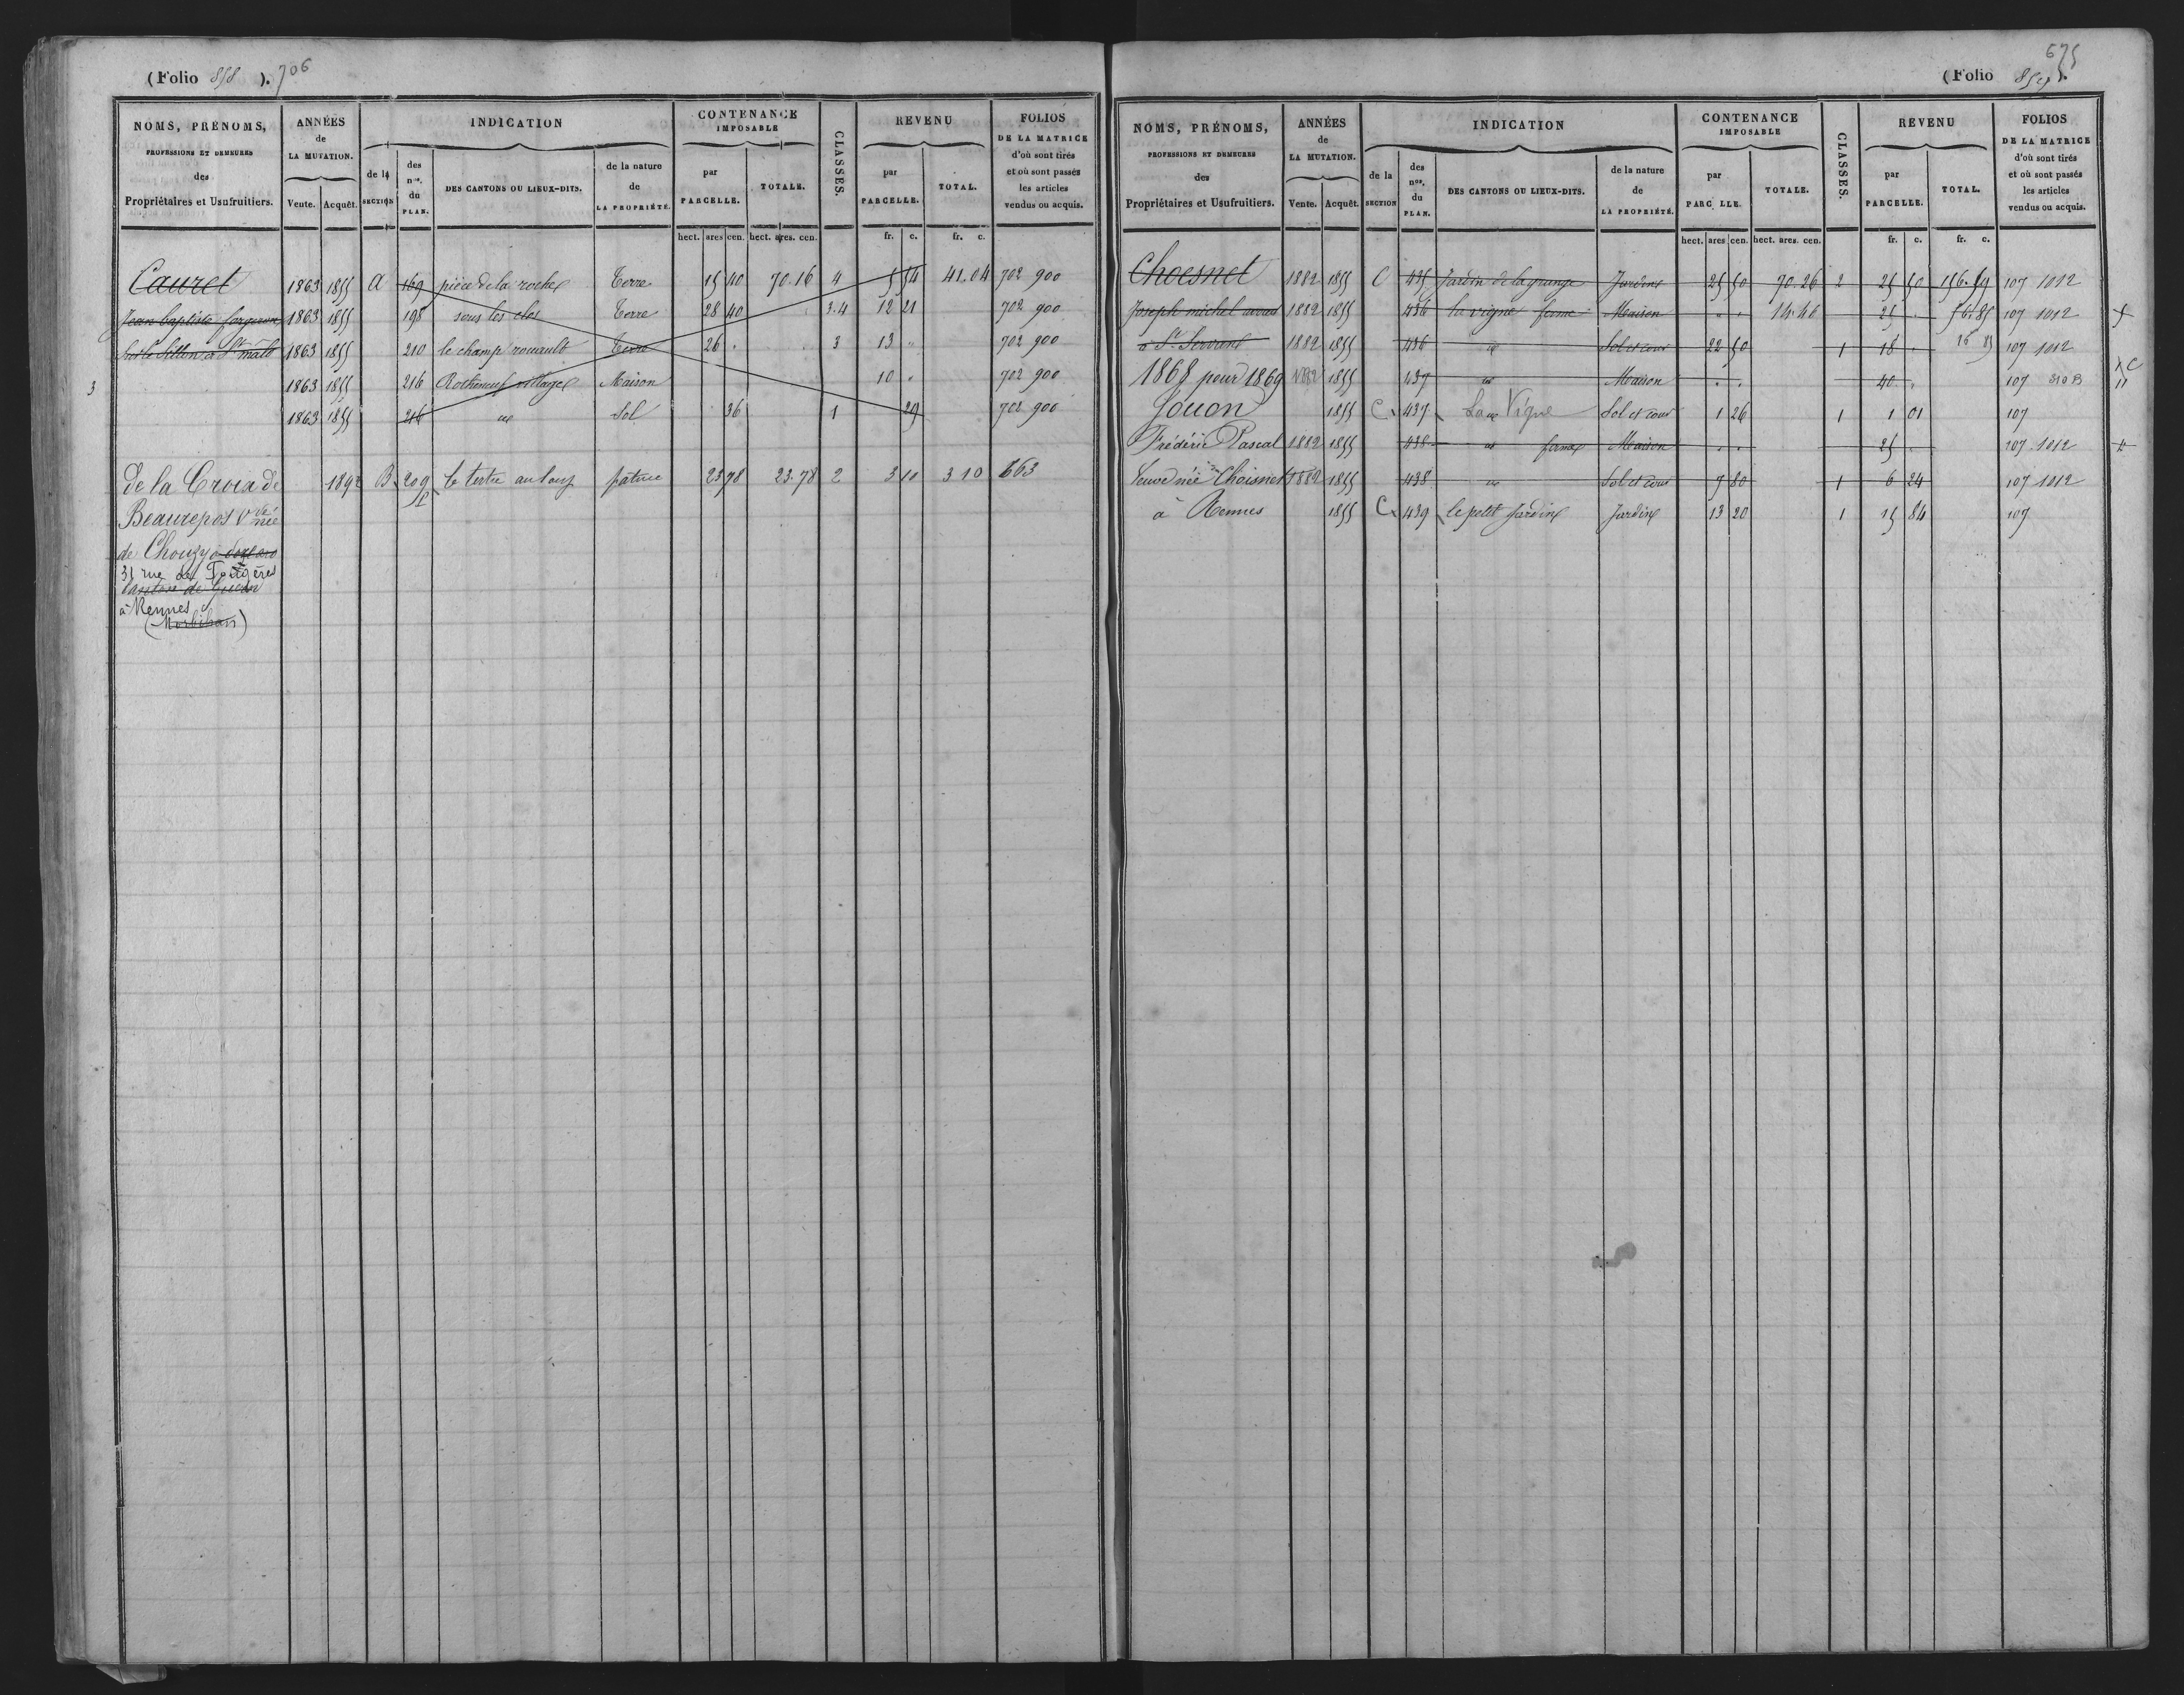 (Folio 858 ). 706
NOMS, PRÉNOMS, PROFESSIONS ET DEMEURES des Propriétaires et Usufruitiers.
ANNÉES de LA MUTATION. Vente. Acquêt.
INDICATION
de la SECTION
des nos. du PLAN.
DES CANTONS OU LIEUX-DITS.
de la nature de LA PROPRIÉTÉ.
CONTENANCE IMPOSABLE
par PARCELLE. TOTALE.
CLASSES.
REVENU
par PARCELLE. TOTAL.
FOLIOS DE LA MATRICE d'où sont tirés et où sont passés les articles vendus ou acquis.
hect. ares cen. hect. ares. cen. fr. c. fr. c.
Cauret 1863 1855 A 169 pièce de la roche Terre 15 40 70.16 4 5 54 41.04 702 900
Jean baptiste forgeron 1863 1855 198 sous les clos Terre 28 40 3.4 12 21 702 900
sur le Sillon à St malo 1863 1855 210 le champ rouault Terre 26 " 3 13 " 702 900
3 1863 1855 216 Rotheneuf village Maison 10 " 702 900
1863 1855 216 id Sol 36 1 29 702 900
De la Croix de 1892 B 209 le tertre au loup pature 23 78 23.78 2 3 10 3 10 663
Beaurepos Vve née P
de Chouzy
31 rue de Fougères
à Rennes
(Morbihan)
(Folio 859 ). 675
NOMS, PRÉNOMS, PROFESSIONS ET DEMEURES des Propriétaires et Usufruitiers.
ANNÉES de LA MUTATION. Vente. Acquêt.
INDICATION
de la SECTION
des nos. du PLAN.
DES CANTONS OU LIEUX-DITS.
de la nature de LA PROPRIÉTÉ.
CONTENANCE IMPOSABLE
par PARC LLE. TOTALE.
CLASSES.
REVENU
par PARCELLE. TOTAL.
FOLIOS DE LA MATRICE d'où sont tirés et où sont passés les articles vendus ou acquis.
hect. ares cen. hect. ares. cen. fr. c. fr. c.
Choesnet 1882 1855 C 435 Jardin de la grange Jardin 25 50 70.26 2 25 50 156.59 107 1012
Joseph michel avoué 1882 1855 436 la vigne ferme Maison " " 14.46 25 " 56.85 107 1012
à St Servant 1882 1855 436 id Sol et cour 22 50 1 18 " 16 85 107 1012
1868 pour 1869 1882 1855 437 id Maison " " 40 " 107 310 B
Jouon 1855 C 437 La Vigne Sol et cour 1 26 1 1 01 107
Frédéric Pascal 1882 1855 438 id ferme Maison " " 25 " 107 1012
Veuve née Choisnet 1882 1855 438 id Sol et cour 7 80 1 6 24 107 1012
à Rennes 1855 C 439 le petit Jardin Jardin 13 20 1 15 84 107